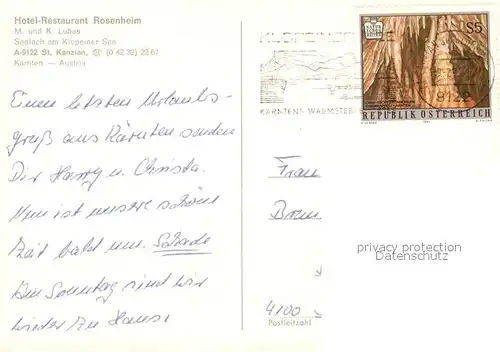 Hotel-Restaurant Rosenheim
M. und K. Lubas
Seelach am Klopeiner See
A-9122 St. Kanzian, ☏ (0 42 39) 22 67
Kärnten — Austria
KLOPEINER
KÄRNTENS WÄRMSTER
S5
9122
REPUBLIK ÖSTERREICH
Einen letzten Urlaubs-
gruß aus Kärnten senden
Dir Harry u. Christa.
Nun ist unsere schöne
Zeit bald um. Schade
Am Sonntag sind wir
wieder zu Hause
Frau
4100
Postleitzahl
privacy protection
Datenschutz